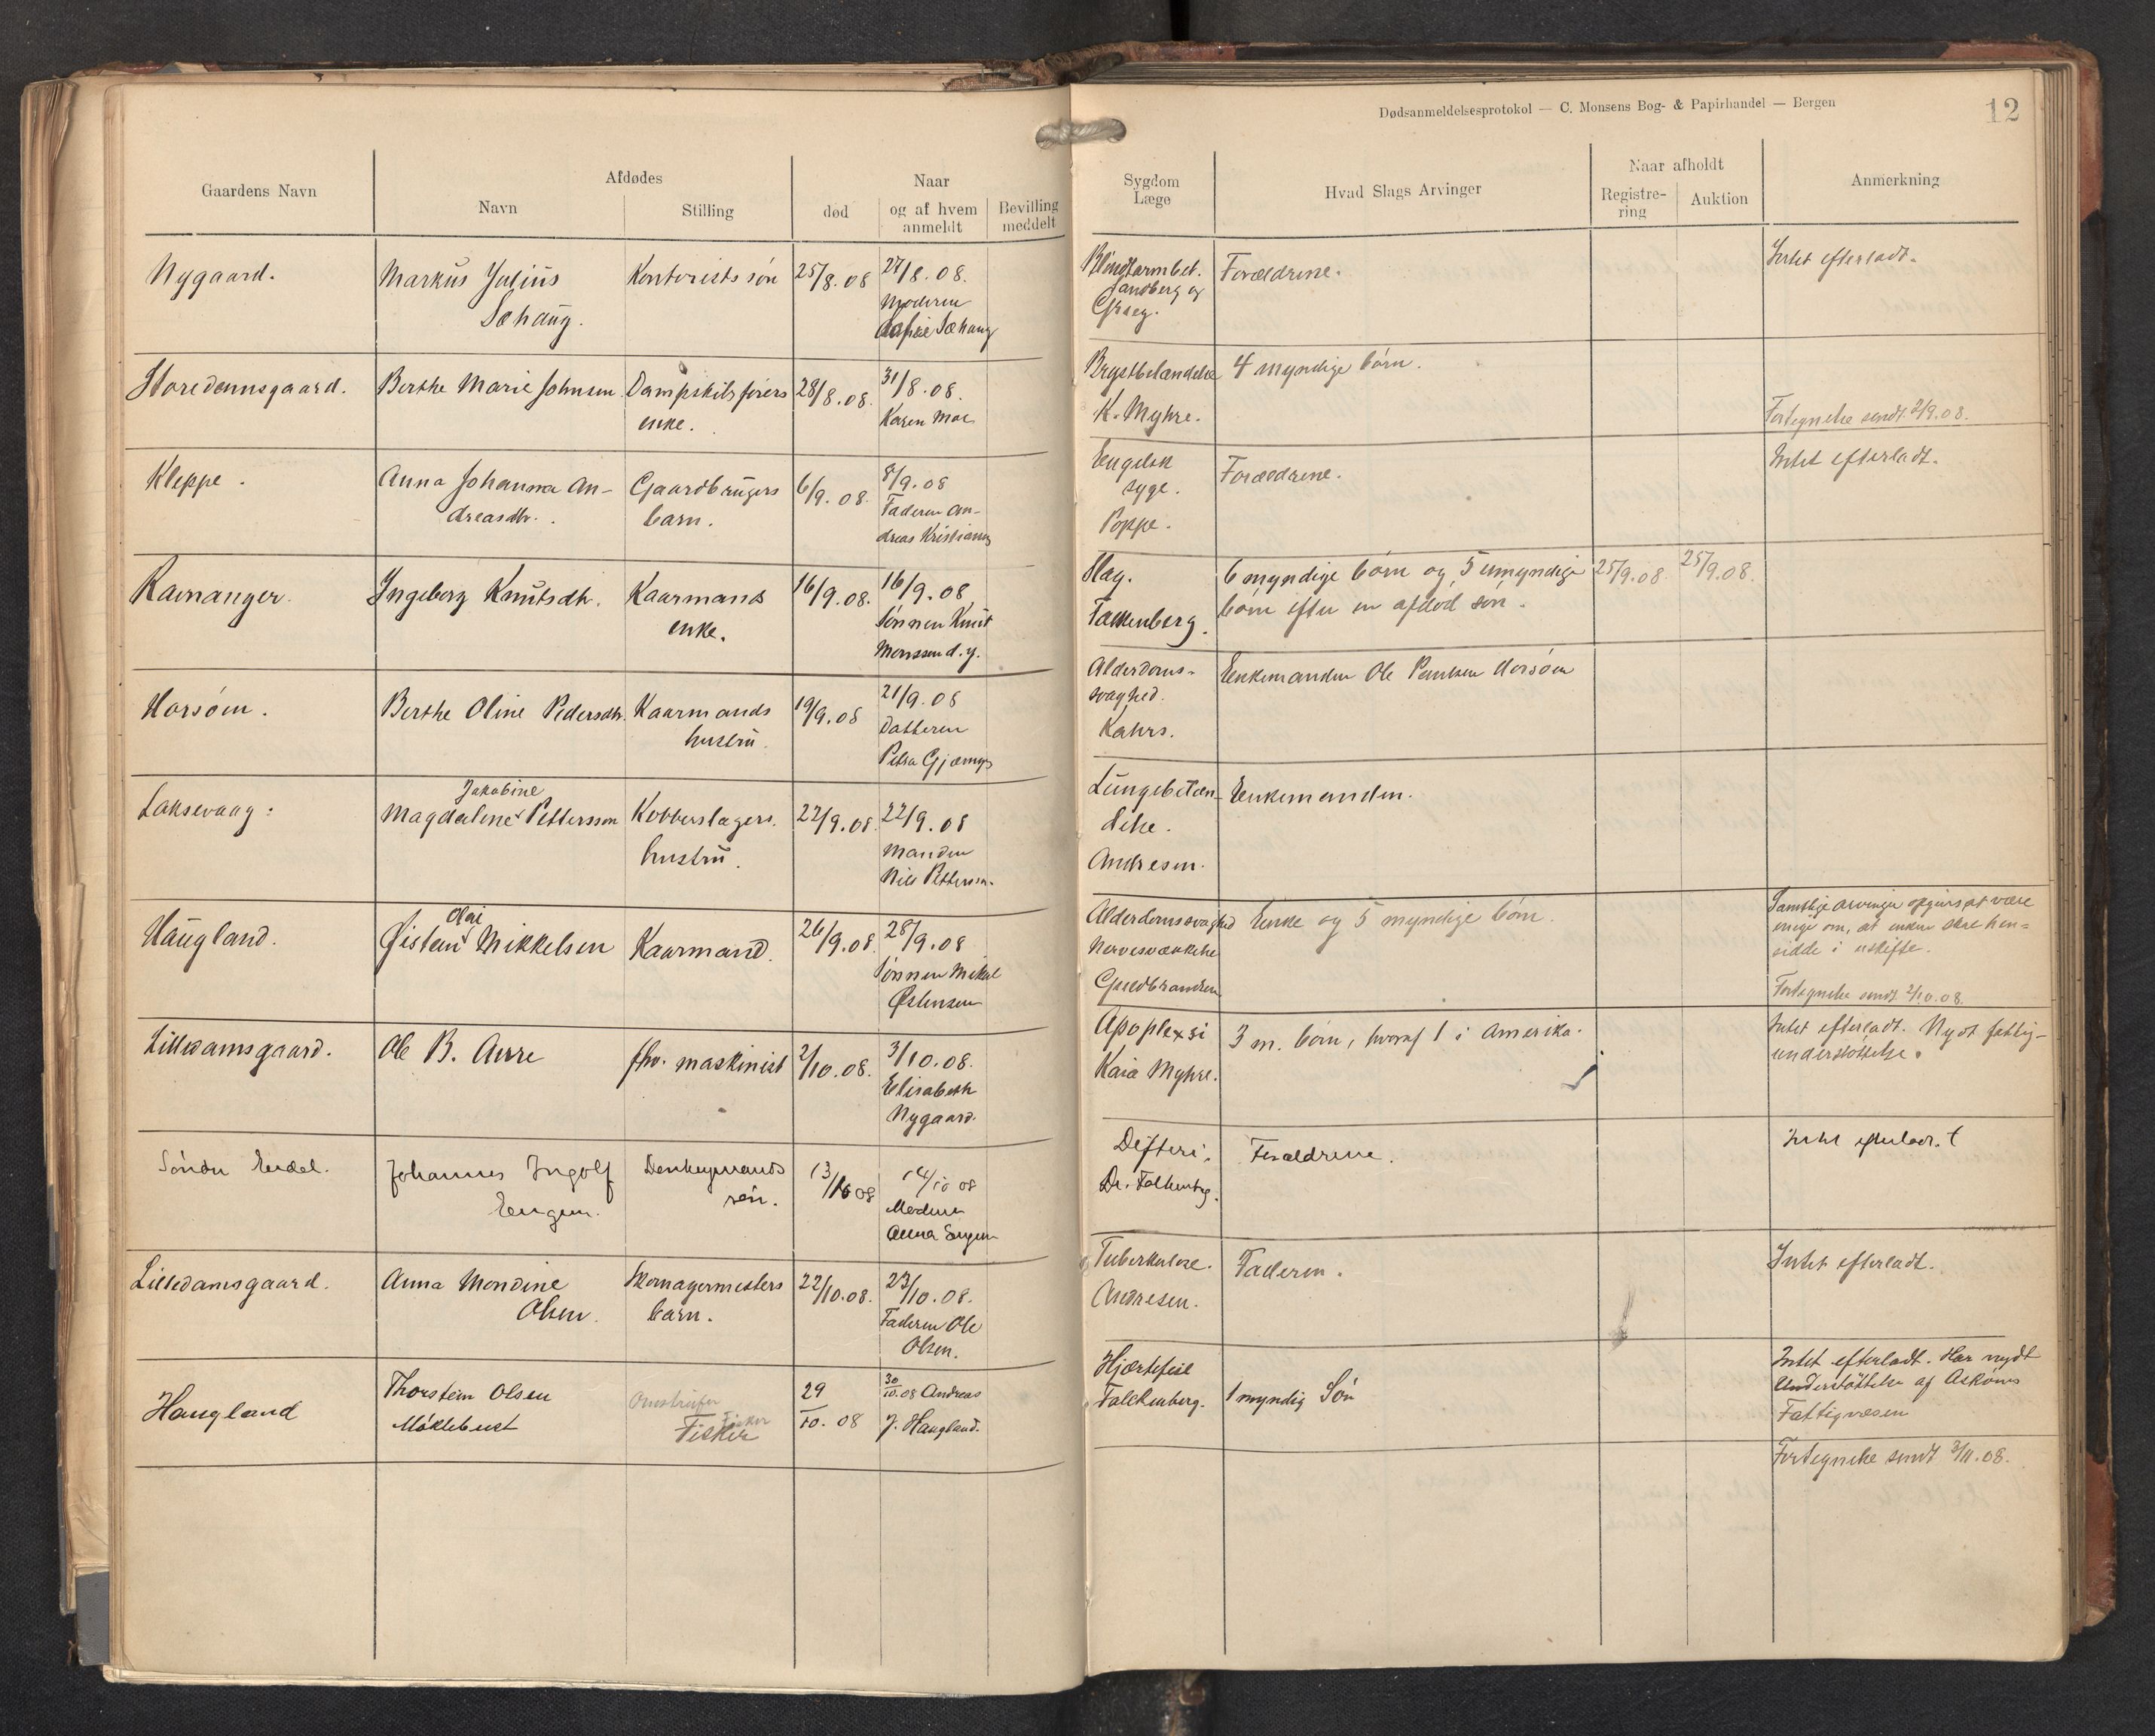 Dødsanmeldelsesprotokol — C. Monsens Bog- & Papirhandel — Bergen
12
Gaardens Navn
Afdødes
Navn
Stilling
Naar
død
og af hvem anmeldt
Bevilling meddelt
Sygdom Læge
Hvad Slags Arvinger
Naar afholdt
Registrering
Auktion
Anmerkning
Nygaard.
Markus Julius
Sæhaug.
Kontorists søn
25/8.08
27/8.08.
Moderen
Sæhaug
Blindtarmbet.
Sandberg og
Grieg.
Forældrene.
Intet efterladt.
Storedamsgaard.
Berthe Marie Johnsen
Dampskibsførers
enke.
28/8.08.
31/8.08.
Karen Moe
Brystbetændelse
K. Myhre.
4 myndige børn.
Fortegnelse sendt 2/9.08.
Kleppe.
Anna Johanna An-
dreasdtr.
Gaardbrugers
barn.
6/9.08.
8/9.08
Faderen An-
dreas Kristians
Engelsk
syge.
Poppe.
Forældrene.
Intet efterladt.
Ramanger.
Ingeborg Knutsdtr.
Kaarmands
enke.
16/9.08.
16/9.08
Sønnen Knut
Monssen d.y.
Slag.
Falkenberg.
6 myndige børn og 5 umyndige
børn efter en afdød søn.
25/9.08.
25/9.08.
Horsøen.
Berthe Oline Pedersdtr.
Kaarmands
hustru.
19/9.08
21/9.08
Datteren
Petra Gjernes
Alderdoms-
svaghed.
Kahrs.
Enkemanden Ole Paulsen Horsøen
Laksevaag:
Jakobine
Magdalene Pettersson
Kobberslagers
hustru.
22/9.08.
22/9.08
Manden
Nils Pettersson.
Lungebetæn-
delse.
Andresen.
Enkemanden.
Haugland.
Olai
Øistein Mikkelsen
Kaarmand.
26/9.08.
28/9.08
Sønnen Mikal
Østensen
Alderdomssvaghed
Nervesvækkelse
Guldbrandsen
Enke og 5 myndige børn.
Samtlige arvinger opgives at være
enige om, at enken skal hen-
sidde i uskifte.
Fortegnelse sendt 2/10.08.
Lilledamsgaard.
Ole B. Aure
fhv. maskinist
2/10.08.
3/10.08.
Elisabeth
Nygaard.
Apoplexsi
Kaia Myhre.
3 m. børn, hvoraf 1 i Amerika.
Intet efterladt. Nydt fattig-
understøttelse.
Søndre Eidet.
Johannes Ingolf
Engen.
Denkeymands
søn.
13/10 08
14/10 08
Moderen
Anna Engen
Difteri.
Dr. Falkenbg.
Forældrene.
Intet efterladt.
Lilledamsgaard.
Anna Mondine
Olsen.
Skomagermesters
barn.
22/10.08.
23/10.08.
Faderen Ole
Olsen.
Tuberkulose.
Andresen.
Faderen.
Intet efterladt.
Haugland
Thorstein Olsen
Møklebust
Fisker
Fisker
29/10.08
30/10.08 Andreas
J. Haugland.
Hjærtefeil
Falckenberg.
1 myndig Søn
Intet efterladt. Har nydt
Understøttelse af Askøens
Fattigvæsen
Fortegnelse sendt 3/11.08.